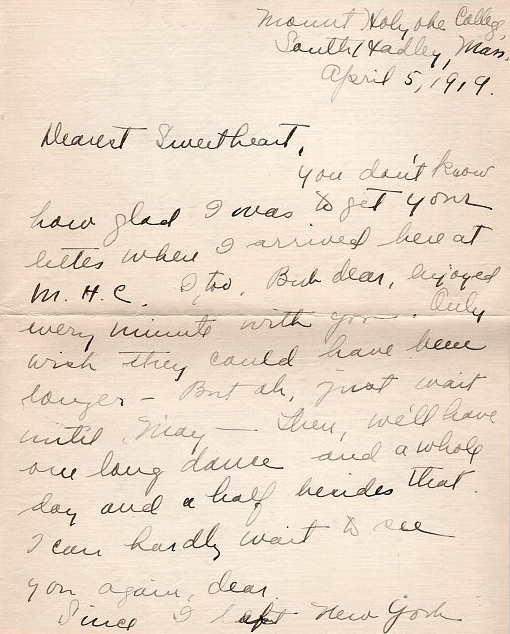 Mount Holyoke College,
South Hadley, Mass.
April 5, 1919.
Dearest Sweetheart,
You don't know
how glad I was to get your
letter when I arrived here at
M. H. C. I, too, Bub dear, enjoyed
every minute with you. Only
wish they could have been
longer - But ah, just wait
until May — Then, we'll have
one long dance and a whole
day and a half besides that.
I can hardly wait to see
you again, dear.
Since I left New York